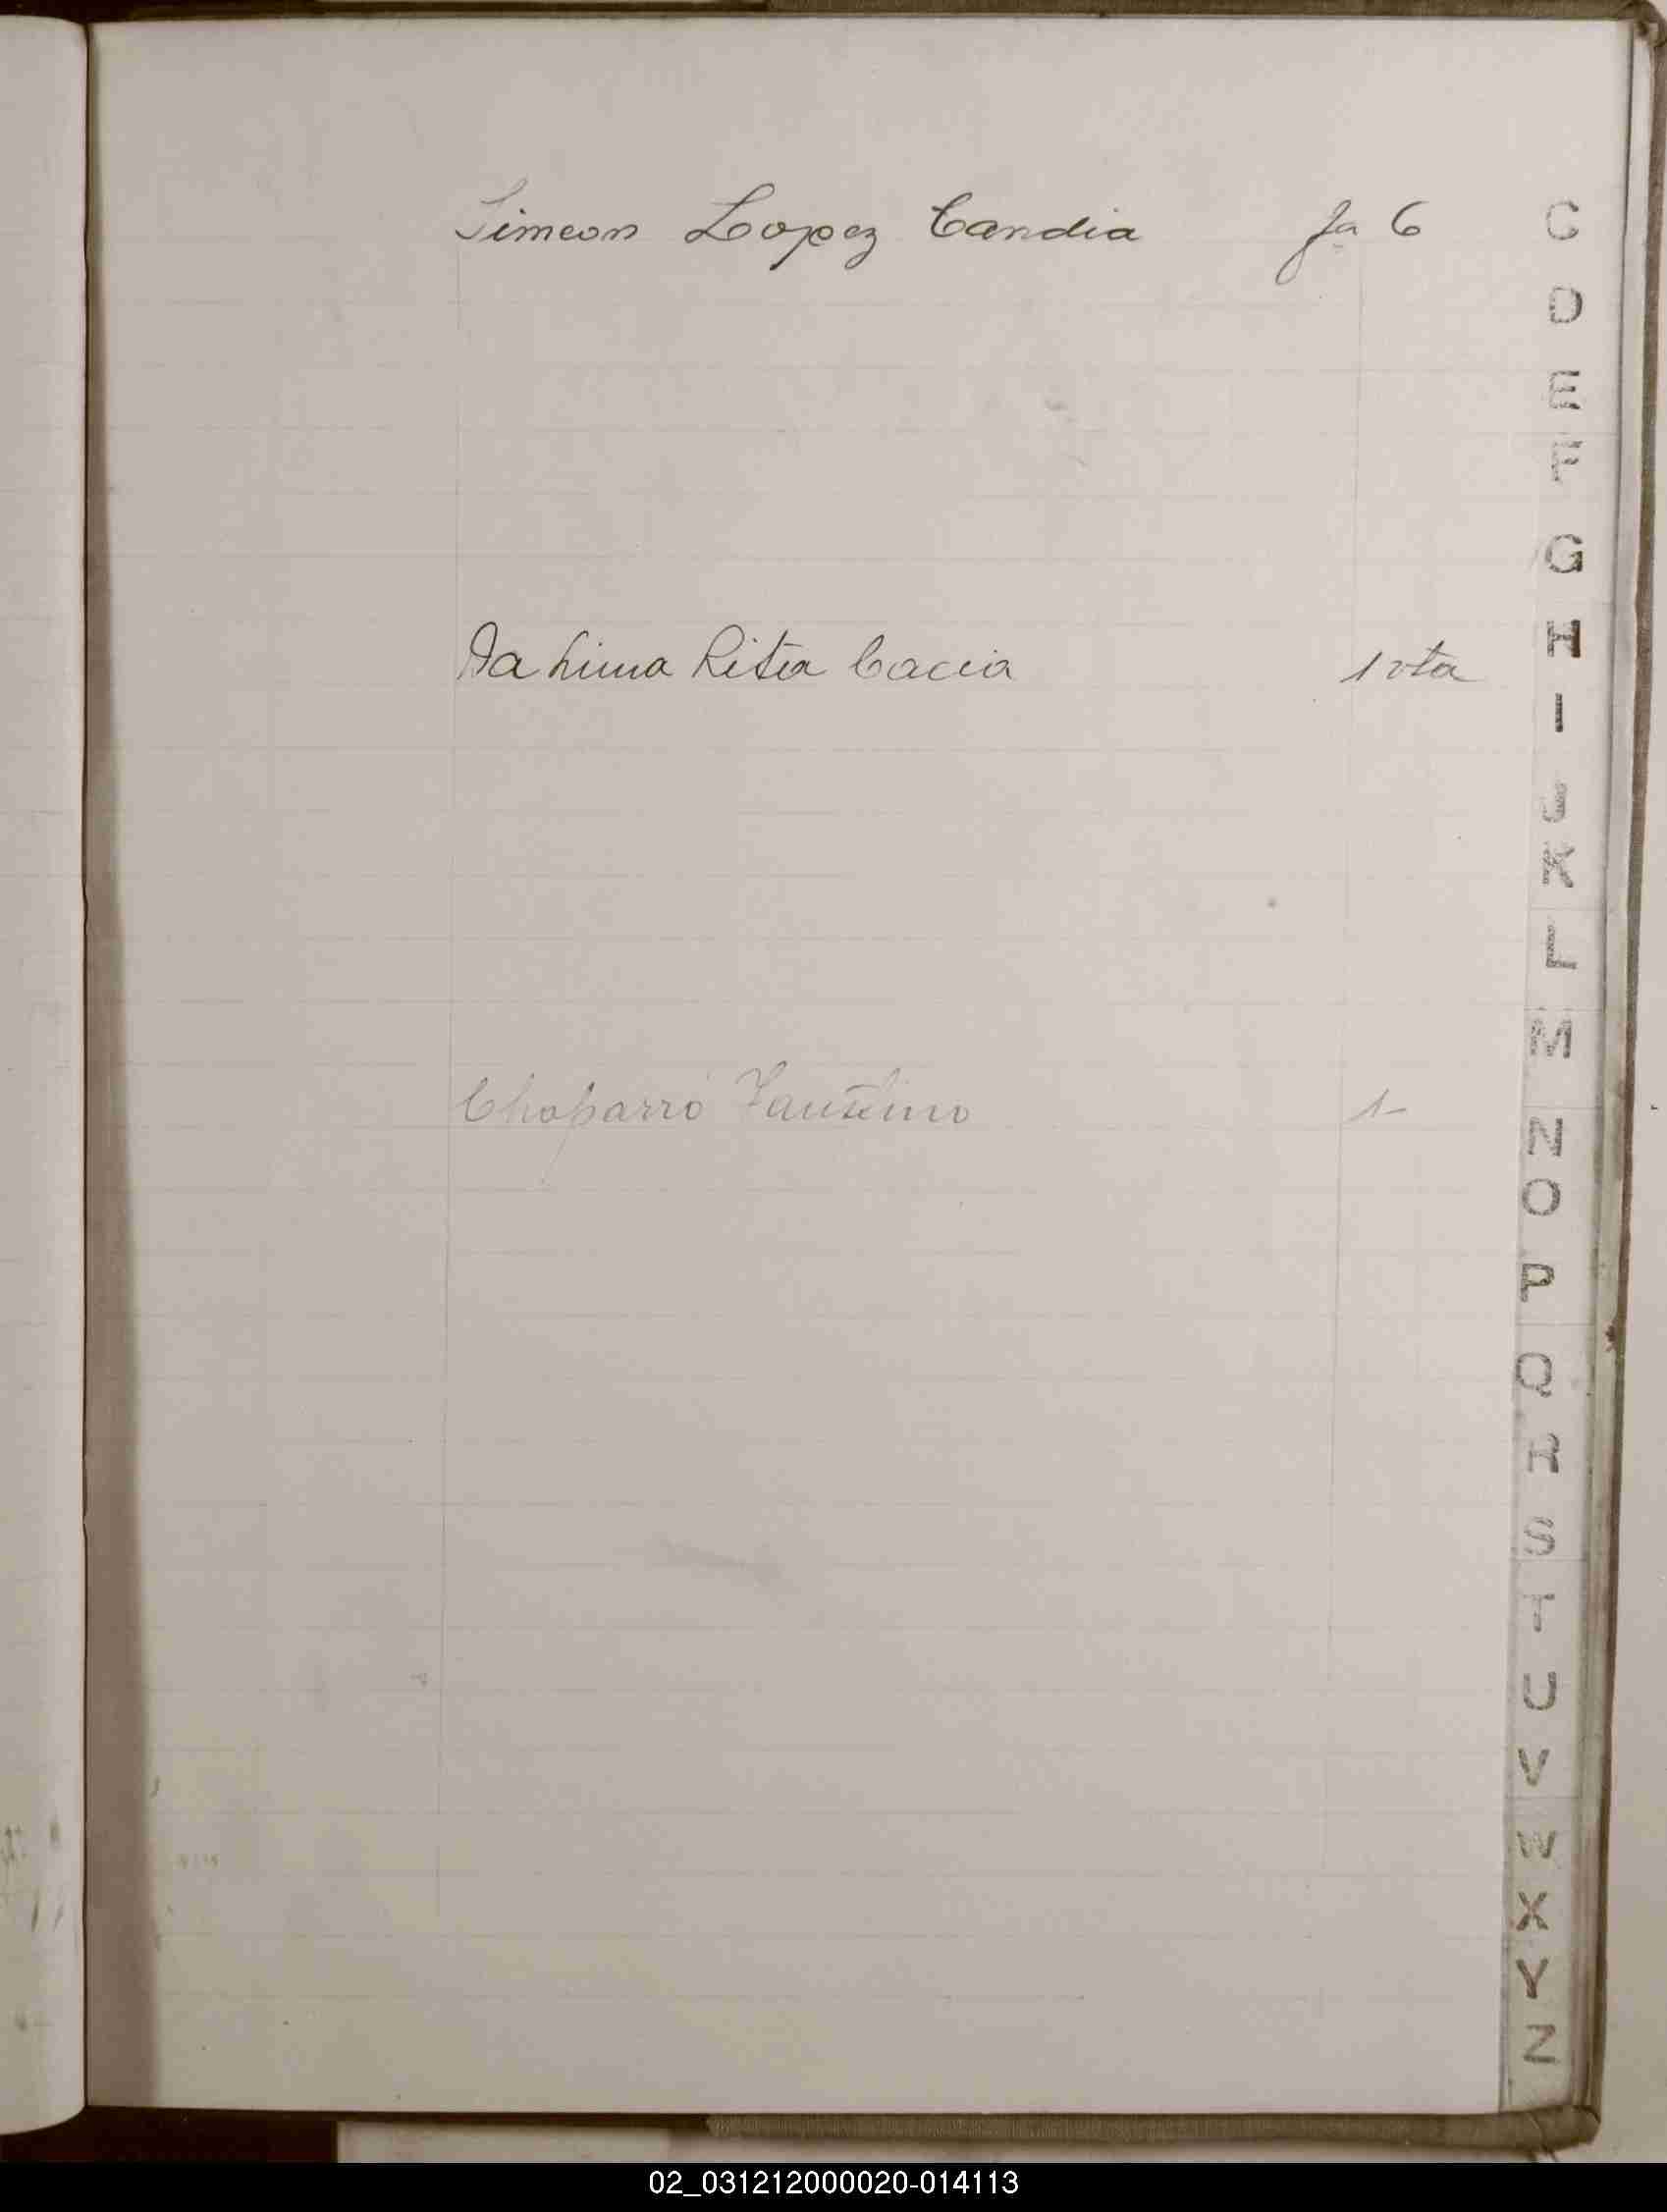 Simeon Lopez Candia fa 6
Da Lima Rita Cacia 1 vta
Chaparro Faustino 1-
C
D
E
F
G
H
I
J
K
L
M
N
O
P
Q
R
S
T
U
V
W
X
Y
Z
02_031212000020-014113